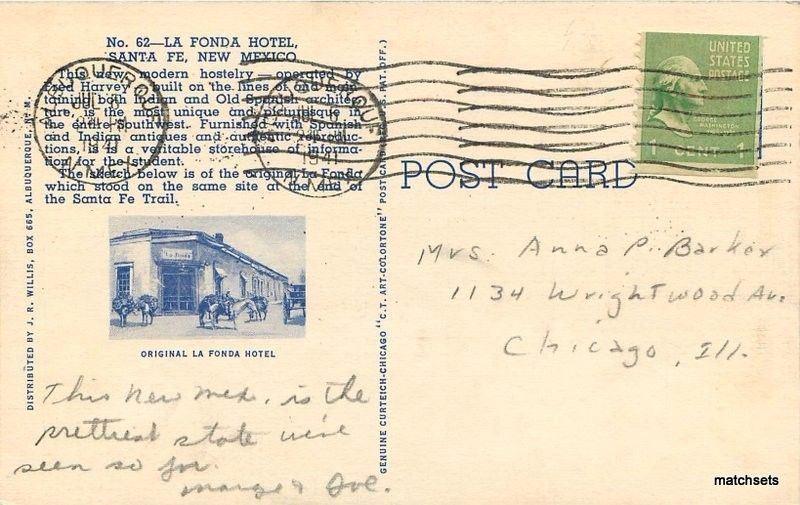 No. 62—LA FONDA HOTEL,
SANTA FE, NEW MEXICO
This new, modern hostelry — operated by
Fred Harvey — built on the lines of and main-
taining both Indian and Old Spanish architec-
ture, is the most unique and picturesque in
the entire Southwest. Furnished with Spanish
and Indian antiques and authentic reproduc-
tions, it is a veritable storehouse of informa-
tion for the student.
The sketch below is of the original La Fonda
which stood on the same site at the end of
the Santa Fe Trail.
La Fonda
ORIGINAL LA FONDA HOTEL
DISTRIBUTED BY J. R. WILLIS, BOX 665, ALBUQUERQUE, N. M.
GENUINE CURTEICH-CHICAGO "C. T. ART-COLORTONE" POST CARD (REG. U. S. PAT. OFF.)
ALBUQUERQUE
1941
ALBUQUERQUE
1941
UNITED
STATES
POSTAGE
GEORGE
WASHINGTON
1 CENT 1
POST CARD
Mrs. Anna P. Barker
1134 Wrightwood Av.
Chicago, Ill.
This New Mex. is the
prettiest state we've
seen so far.
Marge &
matchsets